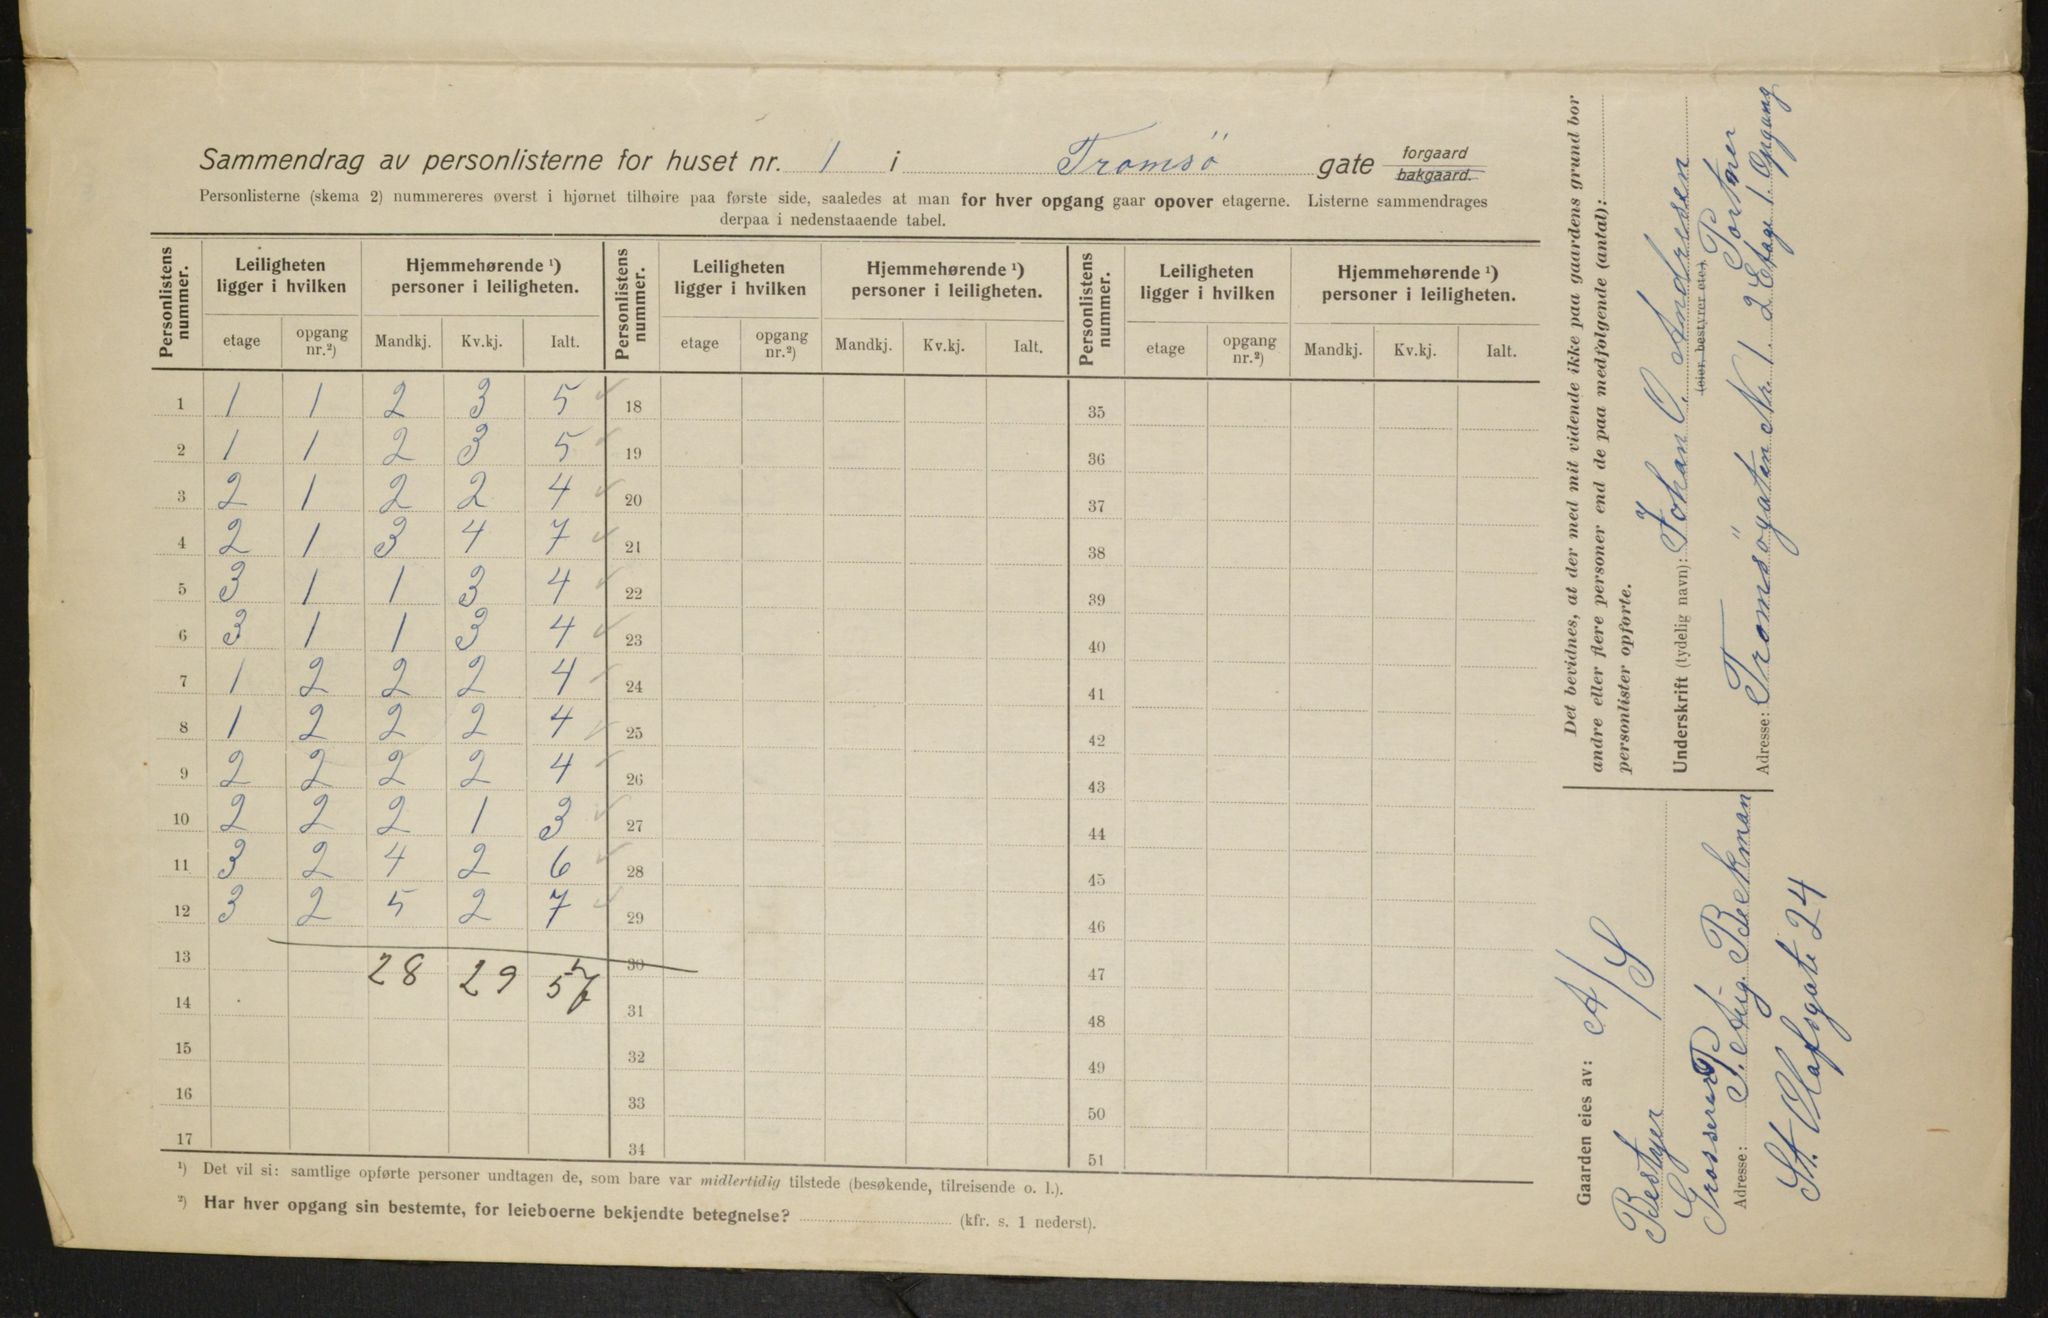 Sammendrag av personlisterne for huset nr. 1 i Tromsö gate forgaard
bakgaard.
Personlisterne (skema 2) nummereres øverst i hjørnet tilhøire paa første side, saaledes at man for hver opgang gaar opover etagerne. Listerne sammendrages
derpaa i nedenstaaende tabel.
Personlistens nummer. Leiligheten ligger i hvilken Hjemmehørende ¹) personer i leiligheten. Personlistens nummer. Leiligheten ligger i hvilken Hjemmehørende ¹) personer i leiligheten. Personlistens nummer. Leiligheten ligger i hvilken Hjemmehørende ¹) personer i leiligheten.
etage opgang nr.²) Mandkj. Kv.kj. Ialt. etage opgang nr.²) Mandkj. Kv.kj. Ialt. etage opgang nr.²) Mandkj. Kv.kj. Ialt.
1 1 1 2 3 5 18 35
2 1 1 2 3 5 19 36
3 2 1 2 2 4 20 37
4 2 1 3 4 7 21 38
5 3 1 1 3 4 22 39
6 3 1 1 3 4 23 40
7 1 2 2 2 4 24 41
8 1 2 2 2 4 25 42
9 2 2 2 2 4 26 43
10 2 2 2 1 3 27 44
11 3 2 4 2 6 28 45
12 3 2 5 2 7 29 46
13 28 29 57 30 47
14 31 48
15 32 49
16 33 50
17 34 51
¹) Det vil si: samtlige opførte personer undtagen de, som bare var midlertidig tilstede (besøkende, tilreisende o. l.).
²) Har hver opgang sin bestemte, for leieboerne bekjendte betegnelse? (kfr. s. 1 nederst).
Det bevidnes, at der med mit vidende ikke paa gaardens grund bor
andre eller flere personer end de paa medfølgende (antal):
personlister opførte.
Underskrift (tydelig navn): Johan O. Andresen
(eier, bestyrer etc.) Portner
Adresse: Tromsögaten Nr 1. 2 Etage 1. Opgang
Gaarden eies av: A/S
Bestyer
Grosserer P. Aug. Beekman
Adresse:
St. Olafsgate 24